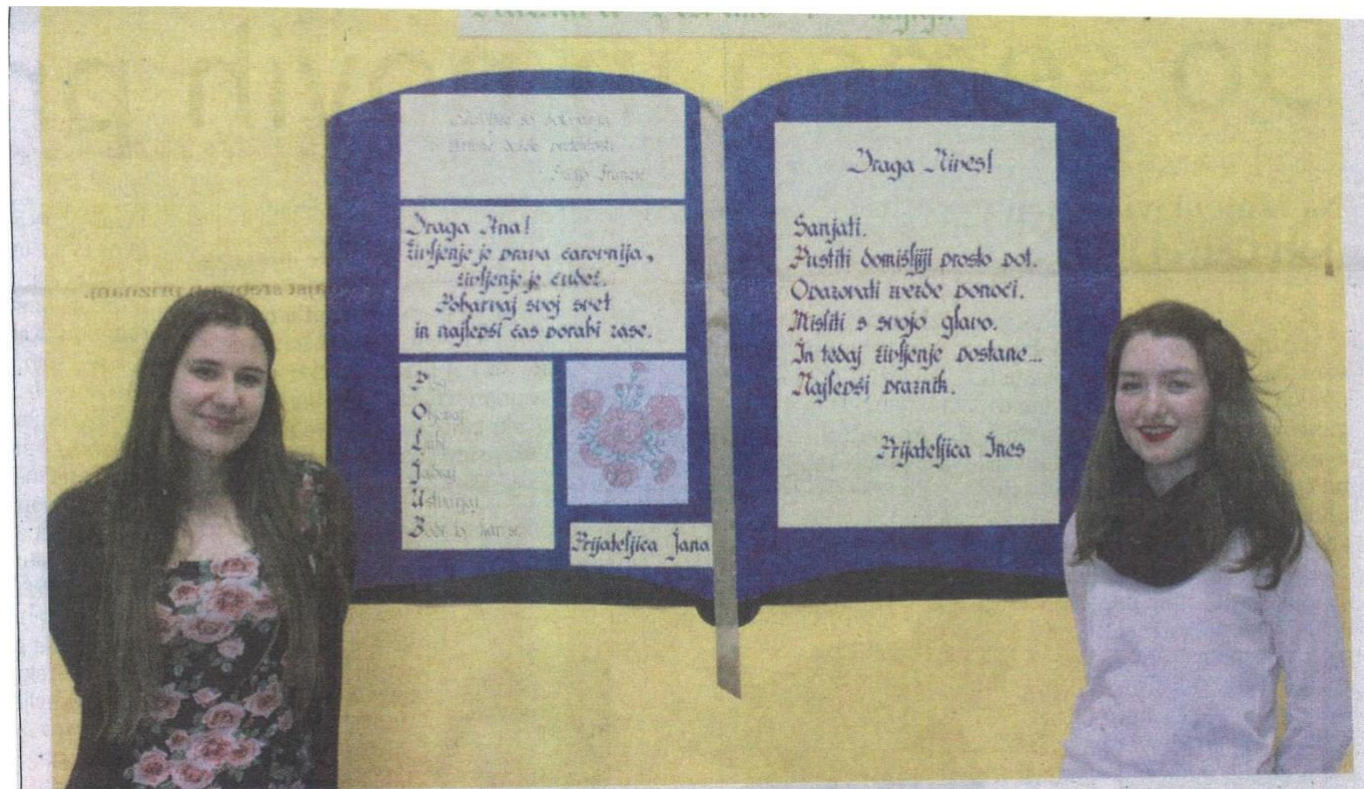 preteklosti
Draga Ana!
Življenje je prava čarovnija,
življenje je čudež.
Pobarvaj svoj svet
in najlepši čas porabi zase.
Objemaj
Ljubi
Ustvarjaj
Bodi to kar si.
Prijateljica Jana
Draga Nives!
Sanjati.
Pustiti domišljiji prosto pot.
Opazovati zvezde ponoči.
Misliti s svojo glavo.
In tedaj življenje postane...
Najlepši praznik.
Prijateljica Ines